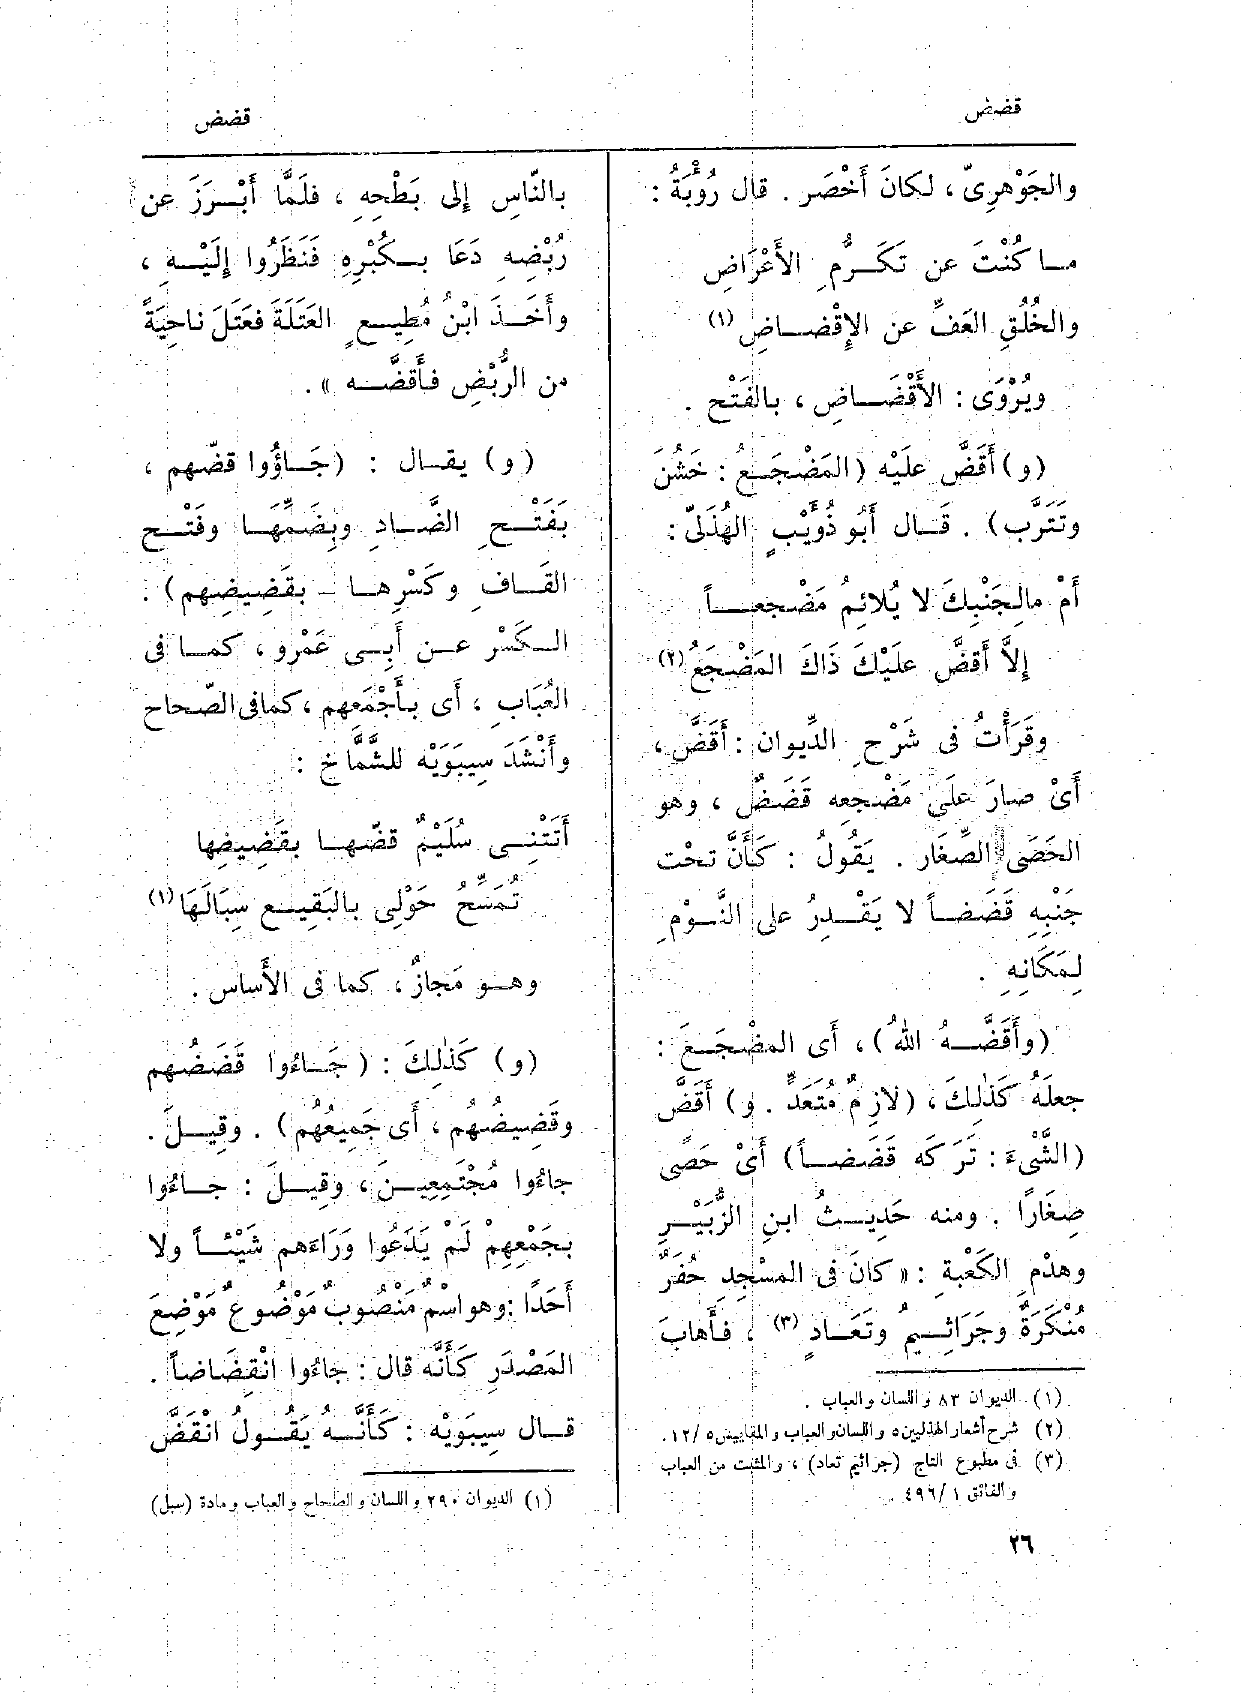 قضض
قضض
والجَوْهرِىّ ، لكانَ أَخْصَر . قال رُؤْبَةُ :
ما كُنْتَ عن تَكَرُّمِ الأَعْرَاضِ
والخُلُقِ العَفِّ عن الإِقْضاضِ (١)
ويُرْوَى : الأَقْضَاضِ ، بالفَتْح .
(و) أَقَضَّ علَيْه (المَضْجَعُ : خَشُنَ
وتَتَرَّب) . قَال أَبُو ذُوَيْبٍ الهُذَلىّ :
أَمْ مالِجَنْبِكَ لا يُلائِمُ مَضْجعاً
إِلاَّ أَقضَّ علَيْكَ ذَاكَ المَضْجَعُ (٢)
وقَرَأْتُ فى شَرْحِ الدِّيوان : أَقَضَّ ،
أَىْ صارَ علَى مَضْجعِه قَضَضٌ ، وهو
الحَصَى الصِّغَار . يَقُولُ : كَأَنَّ تحْت
جَنْبِهِ قَضَضاً لا يَقْدِرُ على النَّوْمِ
لِمَكَانِهِ .
(وأَقَضَّهُ اللهُ) ، أَى المضْجَعَ :
جعلَهُ كَذٰلِكَ ، (لازِمٌ مُتَعَدٍّ . و) أَقَضَّ
(الشَّىْءَ : تَرَكَه قَضَضاً) أَىْ حَصًى
صِغَارًا . ومنه حَدِيثُ ابنِ الزُّبَيْرِ
وهدْمِ الكَعْبةِ : «كانَ فى المسْجِدِ حُفَرٌ
مُنْكَرَةٌ وجَرَاثِيمُ وتَعَادٍ (٣) ، فأَهابَ
(١) الديوان ٨٣ واللسان والعباب .
(٢) شرح أشعار الهذليين ٥ واللسان والعباب والمقاييس ٥ / ١٢ .
(٣) فى مطبوع التاج (جراثيم تعاد) ، والمثبت من العباب
والفائق ١ / ٤٩٦ .
بالنَّاسِ إلى بَطْحِهِ ، فلَمَّا أَبْرَزَ عن
رُبْضِهِ دَعَا بِكُبْرِهِ فَنَظَرُوا إِلَيْهِ ،
وأَخَذَ ابْنُ مُطِيعٍ العَتَلَةَ فعَتَلَ ناحِيَةً
من الرُّبْضِ فأَقضَّه » .
(و) يقال : (جَاؤُوا قضّهم ،
بفَتْحِ الضَّادِ وبِضَمِّهَا وفَتْح
القَافِ وكَسْرِها - بقَضِيضِهم) .
الكَسْر عن أَبِى عَمْرو ، كما فى
العُبَابِ ، أَى بأَجْمَعِهم ، كما فى الصّحاح
وأَنْشَدَ سِيبَوَيْه للشَّمَّاخ :
أَتَتْنِى سُلَيْمٌ قضّها بقَضِيضِها
تُمَسِّحُ حَوْلِى بالبَقِيعِ سِبَالَهَا (١)
وهو مَجازٌ ، كما فى الأَساس .
(و) كَذٰلِكَ : (جَاءُوا قَضَضُهم
وقَضِيضُهُم ، أَى جَمِيعُهُم) . وقِيلَ .
جاءُوا مُجْتَمِعِينَ ، وقِيلَ : جاءُوا
بجَمْعِهِمْ لَمْ يَدَعُوا وَرَاءَهم شَيْئاً ولا
أَحَدًا : وهو اسْمٌ مَنْصُوبٌ مَوْضُوعٌ مَوْضِعَ
المَصْدَرِ كَأَنَّه قال : جاءُوا انْقِضَاضاً .
قال سِيبَوَيْه : كَأَنَّهُ يَقُولُ انْقَضَّ
(١) الديوان ٢٩٠ واللسان والصحاح والعباب ومادة (سبل)
٢٦